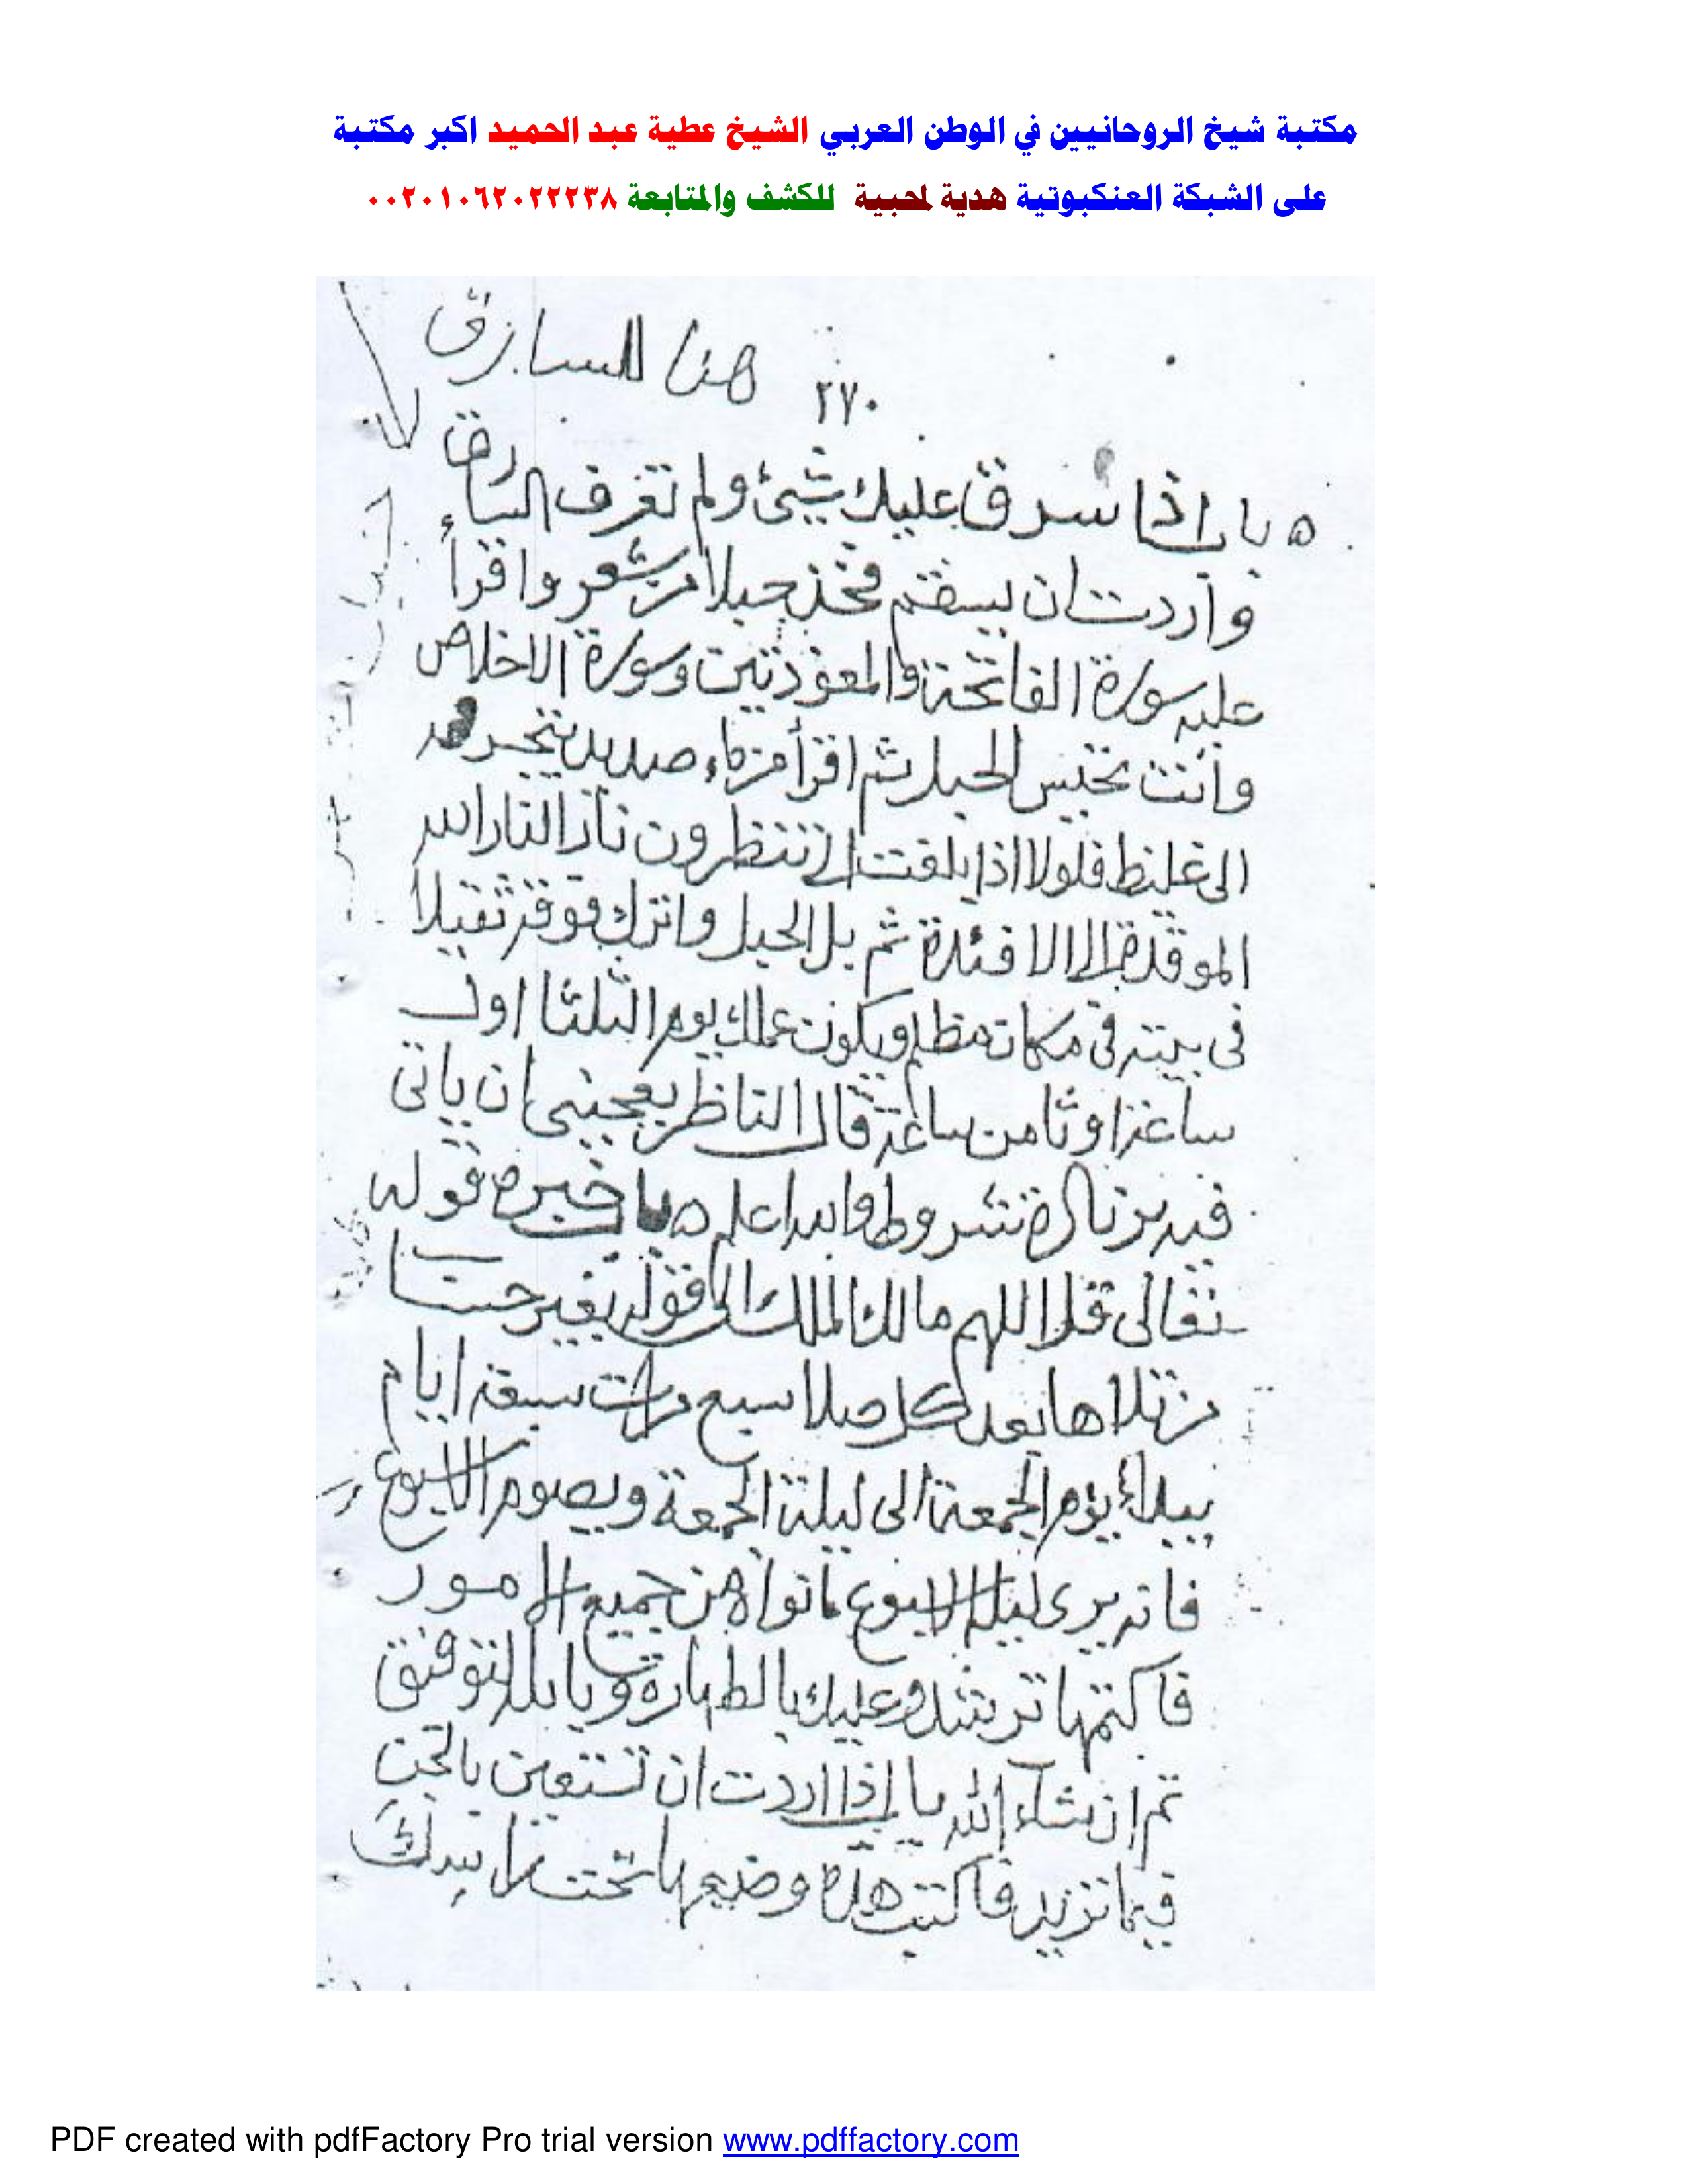 مكتبة شيخ الروحانيين في الوطن العربي الشيخ عطية عبد الحميد اكبر مكتبة
على الشبكة العنكبوتية هدية لمحبية للكشف والمتابعة ٠٠٢٠١٠٦٢٠٢٢٢٣٨
٢٧٠ هنا السارق
باب اذا سرق عليك شيئ ولم تعرف السارق
واردت ان يسقم فخذ حبلا من شعر واقرأ
عليه سورة الفاتحة والمعوذتين وسورة الاخلاص
وانت تحبس الحبل ثم اقرأ من ماء صديد يتجرعه
الى غليظ فلولا اذا بلغت الى تنظرون نار النار الله
الموقدة الى الافئدة ثم بل الحبل واترك فوقه ثقيلا
في بيته في مكان مظلم ويكون عملك يوم الثلثا اول
ساعة او ثامن ساعة قال الناظر يعجبنى ان ياتى
فيه شروط والله اعلم باب خيرة قوله
تعالى قل اللهم مالك الملك الى قوله بغير حساب
من تلاها بعد كل صلا سبع مرات سبعة ايام
يبدأ يوم الجمعة الى ليلة الجمعة ويصوم الاسبوع
فانه يرى ليلة الاسبوع مانواه من جميع الامور
فاكتمها ترشد وعليك بالطهارة وبالله التوفيق
تم ان شاء الله باب اذا اردت ان تستعين بالجن
فيما تريد فاكتب هذه وضعها تحت راسك
PDF created with pdfFactory Pro trial version www.pdffactory.com